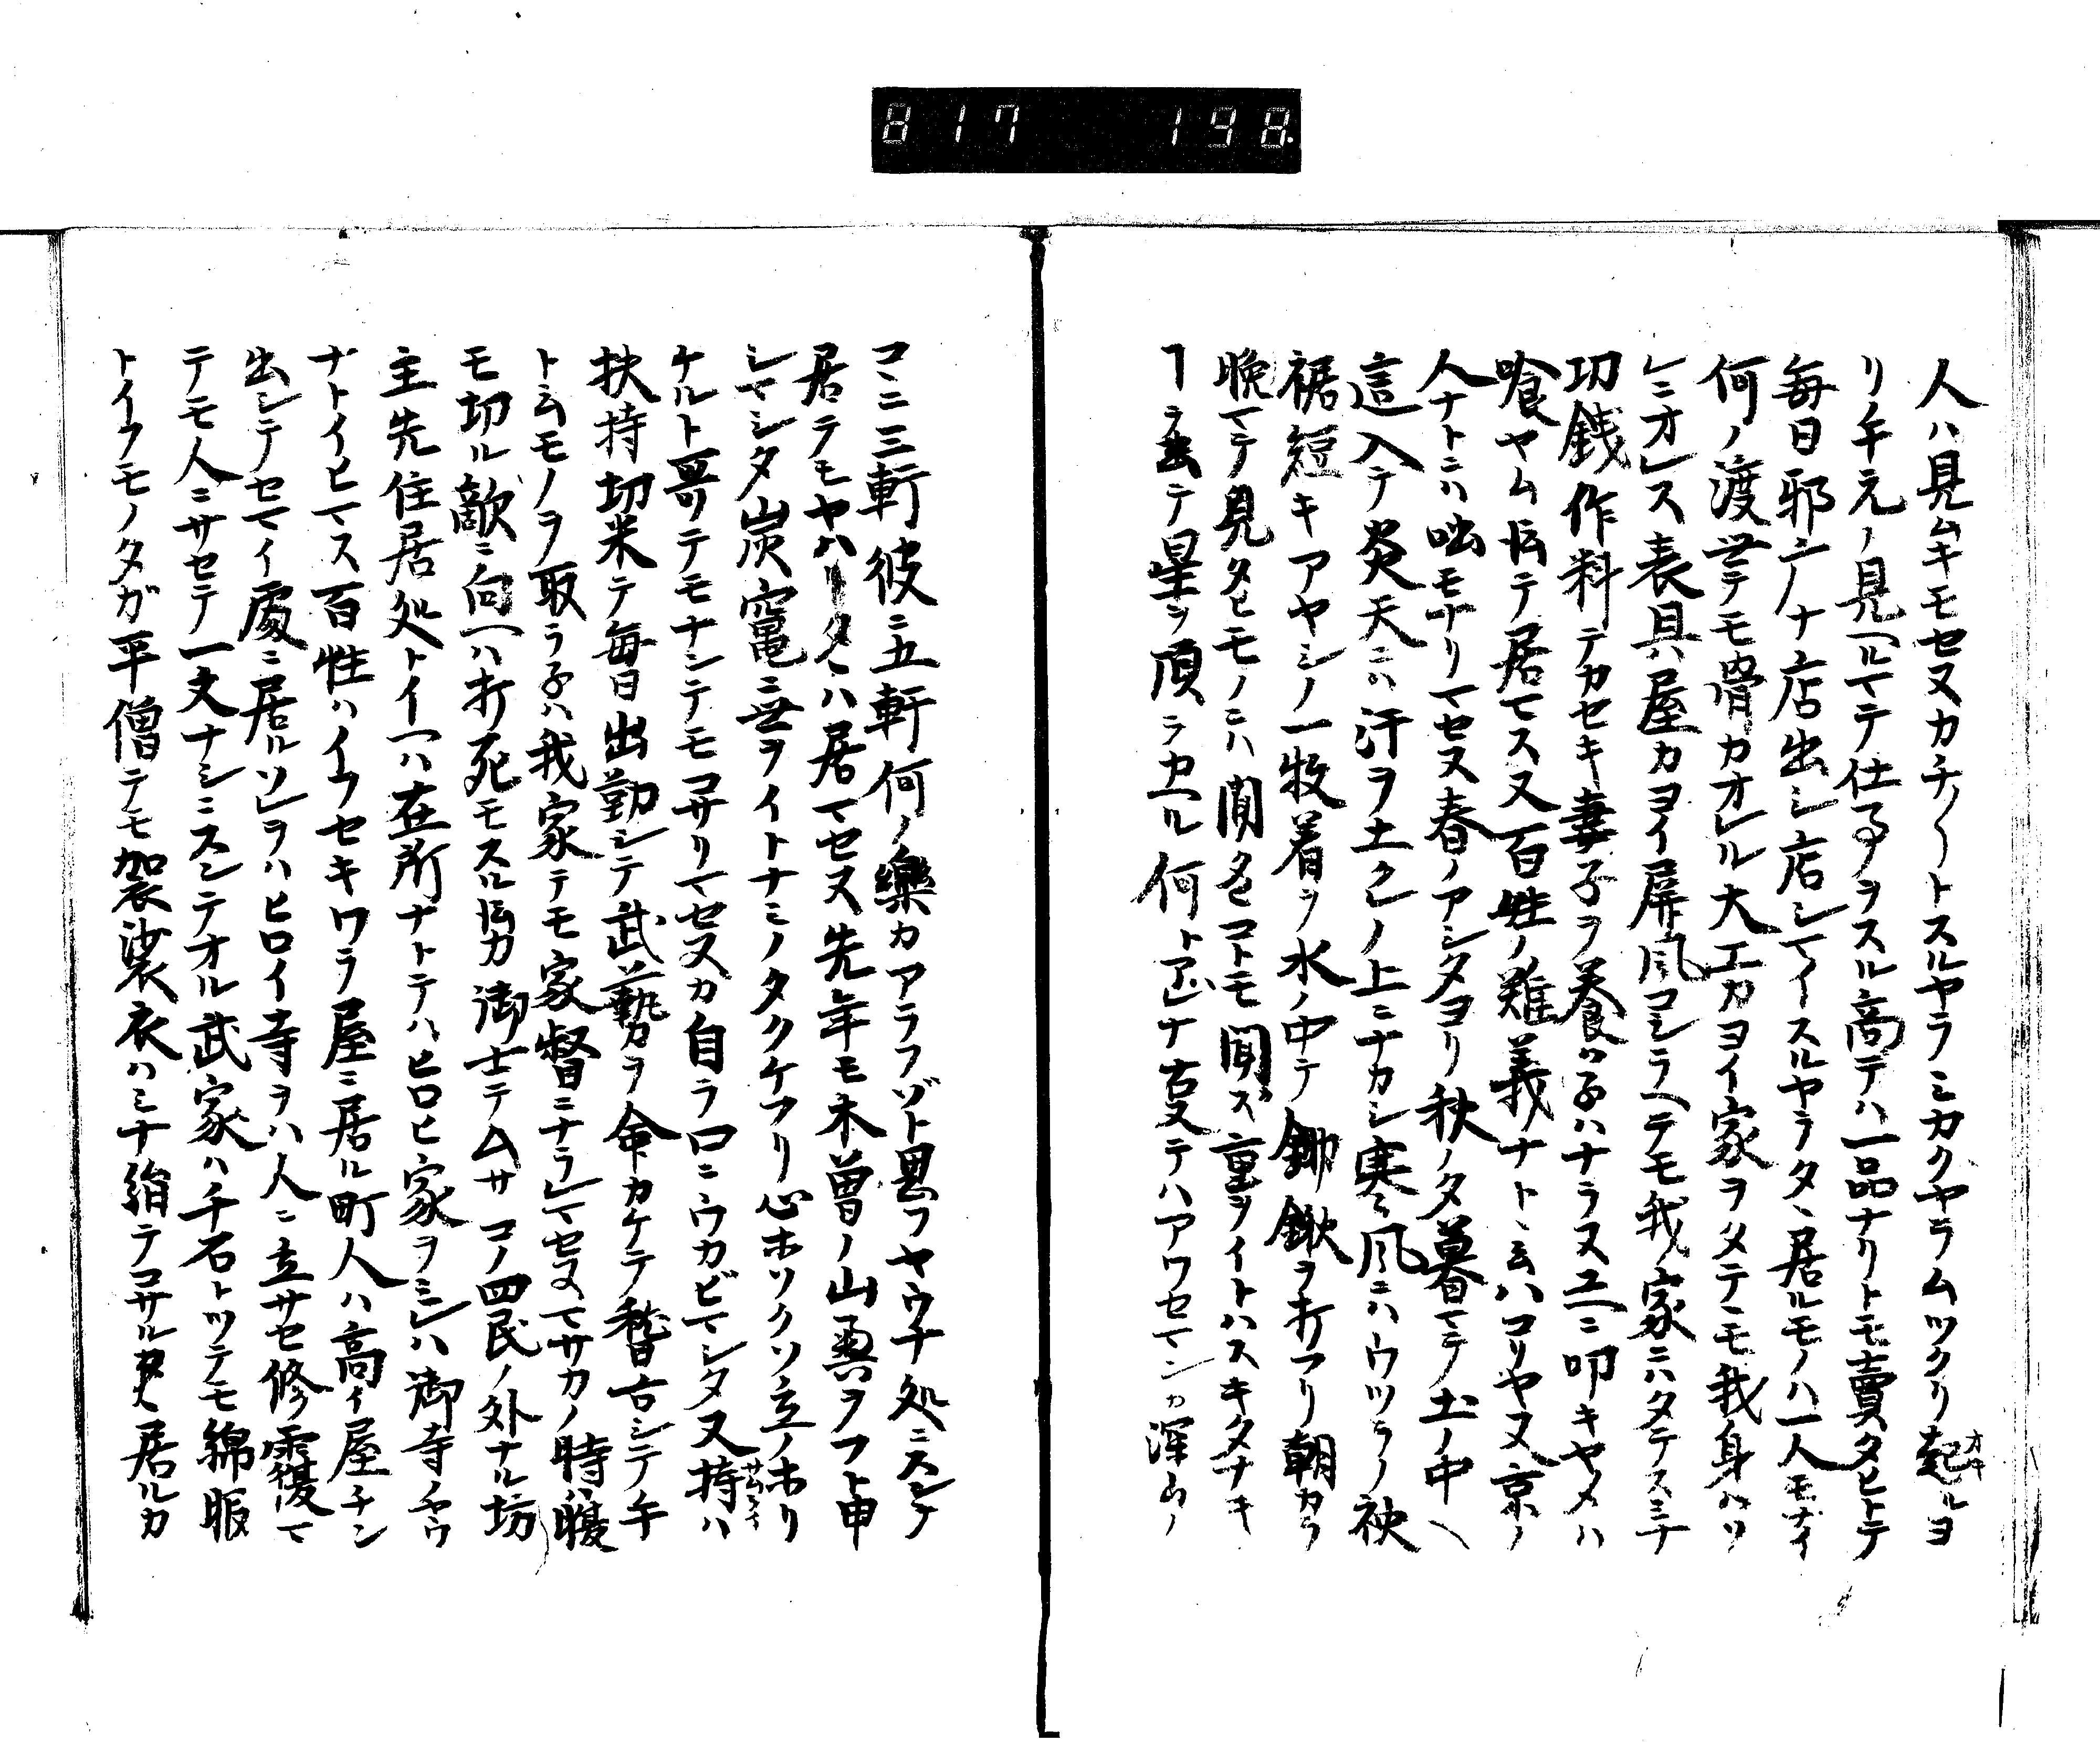 817 198
人ハ見ムキモセヌカチ〳〵トスルヤラミカクヤラムツクリ起ルヨ
オキ
リ午元ノ見ヘルマテ仕事ヲスル高テハ一品ナリトモ賣タヒトテ
毎日邪广ナ店出シ店シマイスルヤラタヽ居ルモノハ一人モナイ
何ノ渡世テモ骨カオレル大工カヨイ家ヲタテテモ我身ハソ
レニオレス表具屋カヨイ屏風コシラヘテモ我家ニハタテスミナ
功銭作料テカセキ妻子ヲ養ハ子ハナラヌユヘニ叩キヤメハ
喰ヤム伝テ居マス又百姓ノ難義ナトヽ云ハコリヤ又京ノ
人ナトニハ咄モナリマセヌ春ノアシタヨリ秋ノ夕暮マテ土ノ中ヘ
這入テ炎天ニハ汗ヲ土クレノ上ニナカシ寒風ニハウツラノ袂
裾短キアヤシノ一枚着ヲ水ノ中テ鋤鍬ヲ打フリ朝カラ
晩マテ見タヒモノニハ聞タヒコトモ聞ス重ヲイトハスキタナキ
ヿヲ厺テ星ヲ頂ラカヘル何トナ支テハアワセマシカ深山ノ
コニ三軒彼ニ五軒何ノ樂カアラフゾト思フヤウナ処ニスンテ
居テモヤハリタヽハ居マセヌ先年モ木曽ノ山奥ヲフト申
シマシタ炭竃ニ世ヲイトナミノタクケフリ心ホソクソ立ノホリ
ケルト哥テモナンテモコサリマセヌカ自ラ口ニウカビマシタ又持ハ
サムライ
扶持切米テ毎日出勤シテ武藝カヲ命カケテ稽古シテ午
ト云モノヲ取ラ子ハ我家テモ家督ニナラレマセヌマサカノ時ハ腹
モ切ル敵ニ向ヘハ打死モスル伝カ御士テムサコノ四民ノ外ナル坊
主先住居処トイヘハ在所ナトテハヒロヒ家ヲミレハ御寺チヤウ
ナトイヒマス百姓ハイフセキワラ屋ニ居ル町人ハ高イ屋チン
出シテセマイ處ニ居ルソレヲハヒロイ寺ヲハ人ニ立サセ修覆マ
テモ人ニサセテ一文ナシニスンテオル武家ハ千石トツテモ綿服
トイフモノタガ平僧テモ加裟裟衣ハミナ絹テコサル又居ルカ